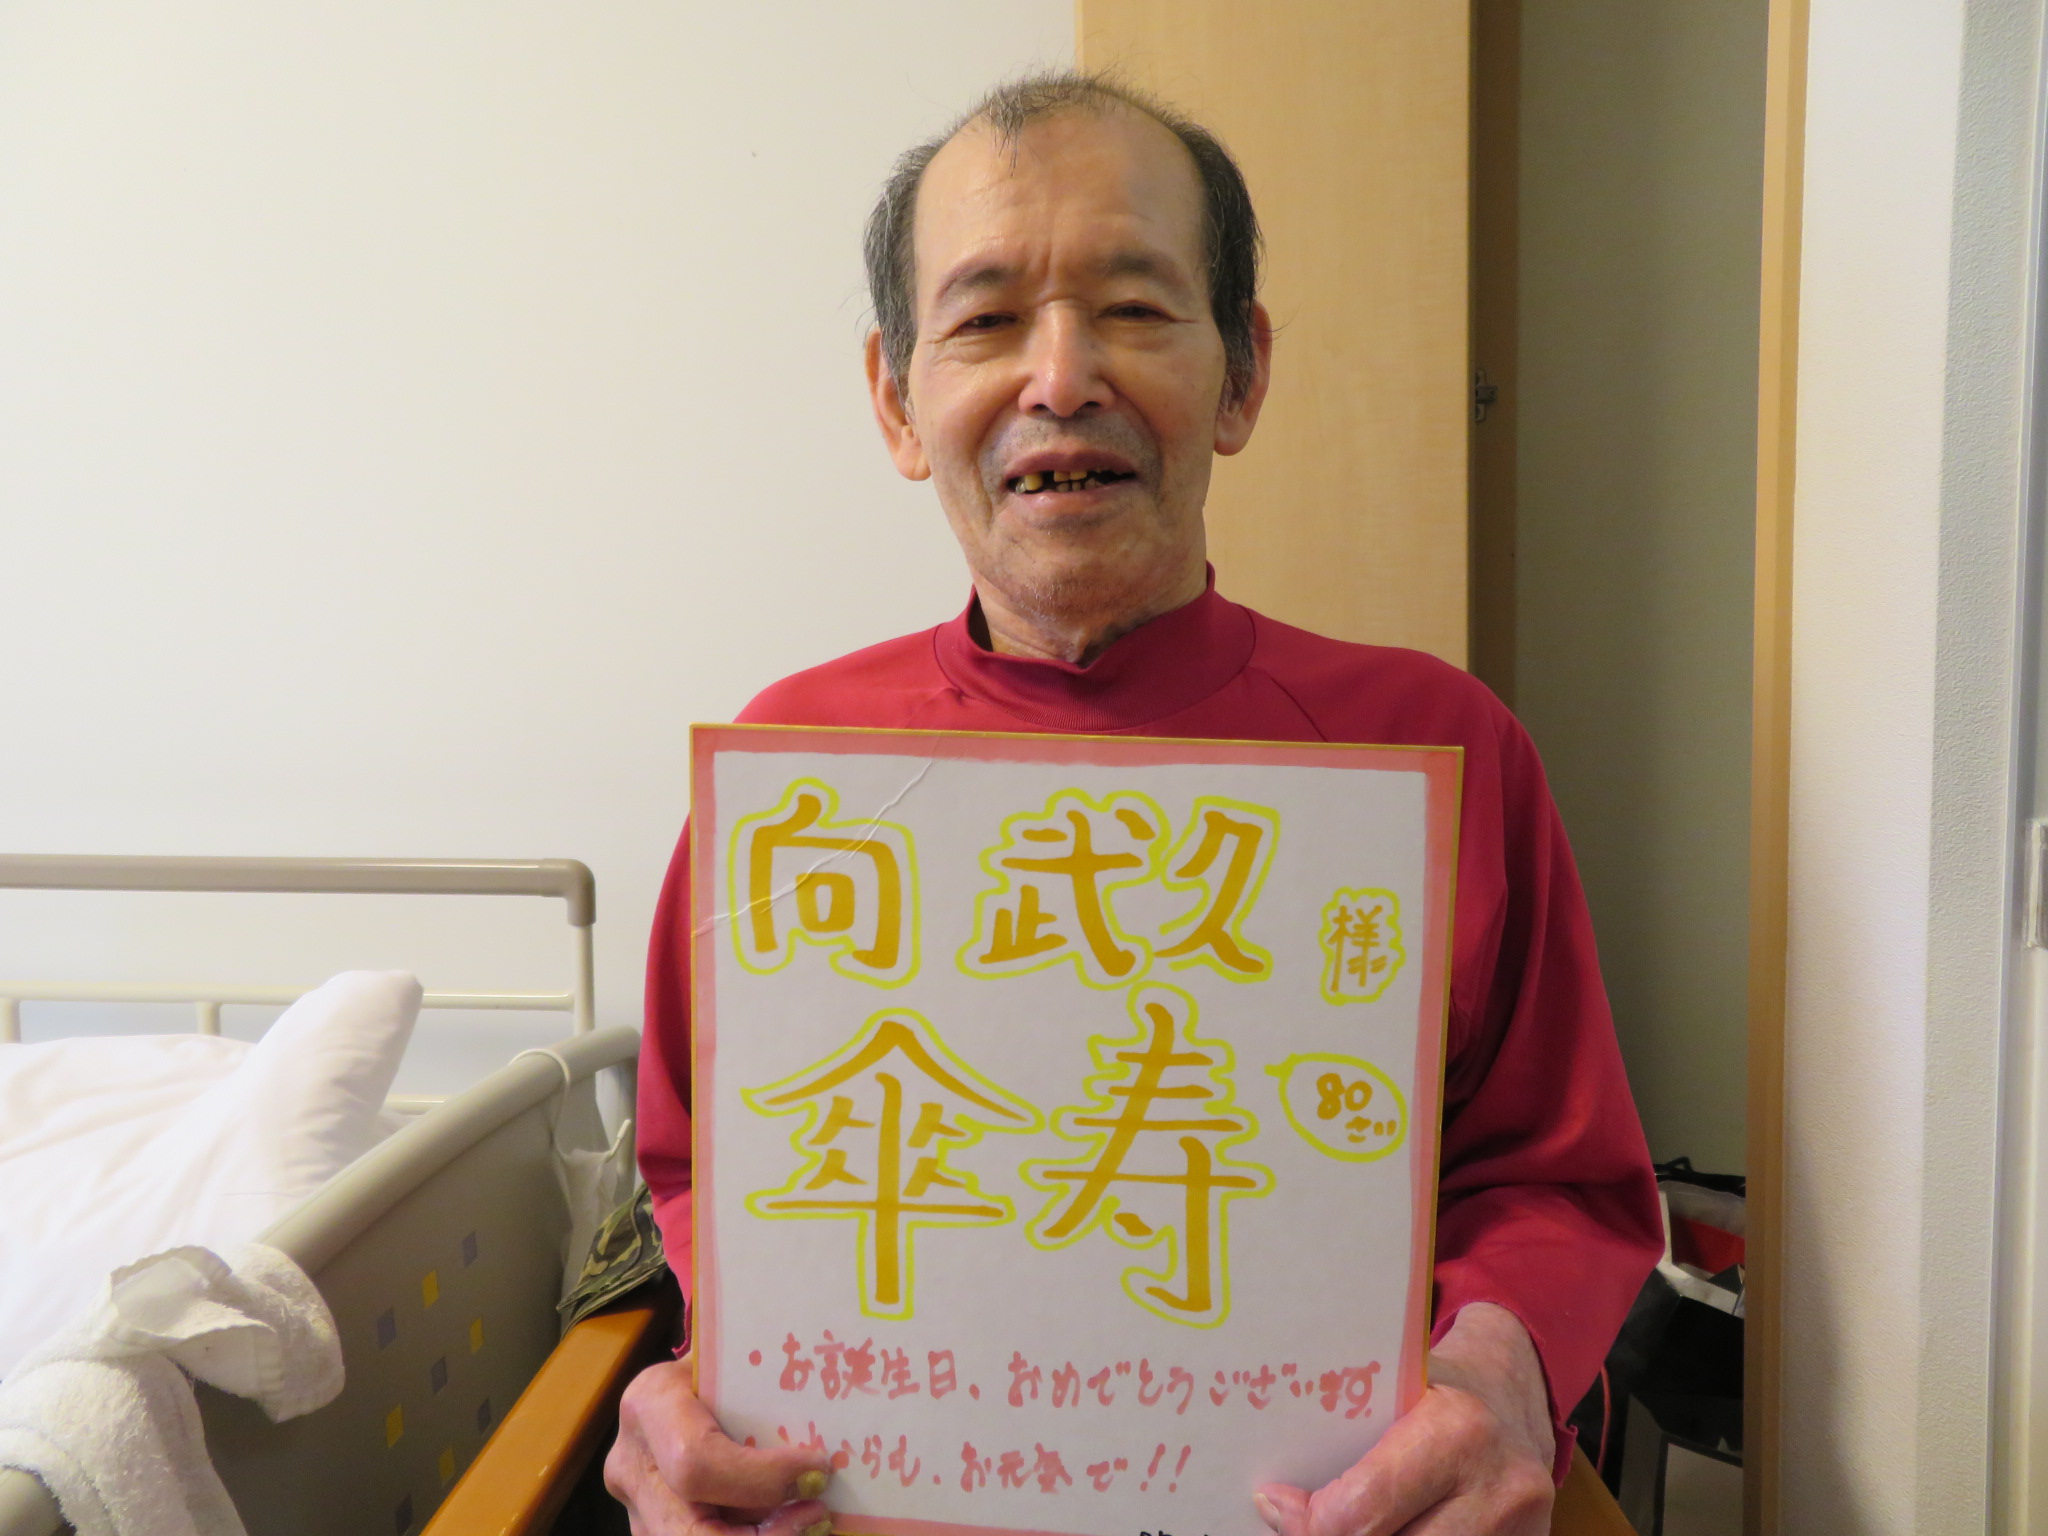 向 武久 様
傘寿 80さい
・お誕生日、おめでとうございます。
らも、お元気で!!